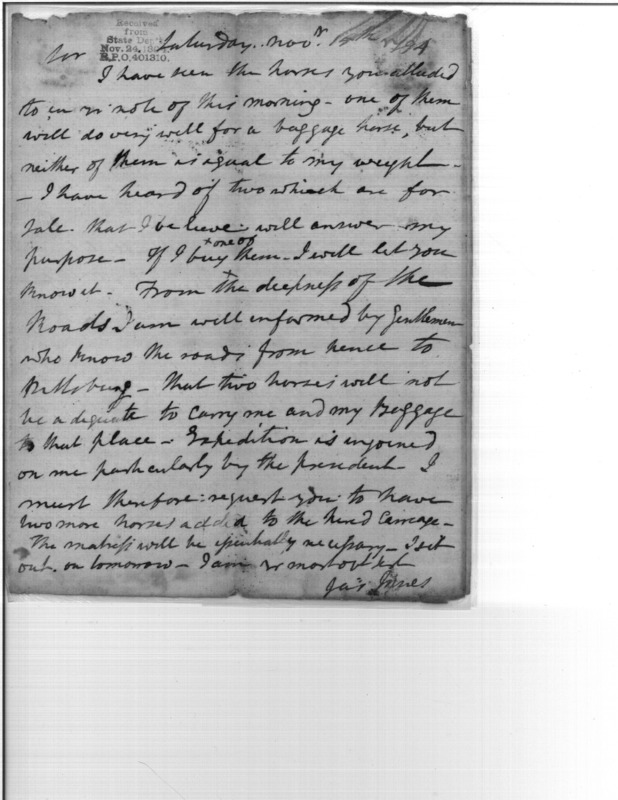 Received
from
State Dep't
Nov. 24, 189
R.P.O. 401310.
Saturday. Novr. 15th 94
Sir
I have seen the horses you alluded
to in yr note of this morning - one of them
will do very well for a baggage horse, but
neither of them is equal to my weight -
- I have heard of two which are for
sale. that I beleeve will answer my
purpose - If I buy + one of them - I will let you
know it - From the deepness of the
Roads I am well informed by Gentlemen
who know the roads from hence to
Pittsburg - that two horses will not
be adequate to carry me and my Baggage
to that place - Expedition is injoined
on me particularly by the president - I
must therefore request you to have
two more horses added to the hired Carriage -
The matress will be essentially necessary - I set
out on tomorrow - I am yr most obt st
Jas Innes